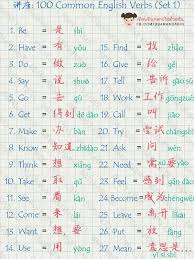 讲座: 100 Common English Verbs (Set 1)
1. Be = 是 shì
2. Have = 有 yǒu
3. Do = 做 zuò
4. Say = 说 shuō
5. Go = 去 qù
6. Get = 得到 dé dào
7. Make = 做 zuò
8. Know = 知道 zhīdào
9. Think = 想 xiǎng
10. Take = 拿 ná
11. See = 看 kàn
12. Come = 来 lái
13. Want = 想 xiǎng
14. Use = 用 yòng
Find = 找 zhǎo
Give = 给 gěi
Tell = 告诉 gào sù
Work = 工作 gōngzuò
Try = 尝试 chángshì
Ask = 问 wèn
Need = 需要 xū yào
Feel = 感到 gǎn dào
Become = 成为 chéngwéi
Leave = 离开 líkāi
Put = 放 fàng
27. Mean = 意思是 yì si shì